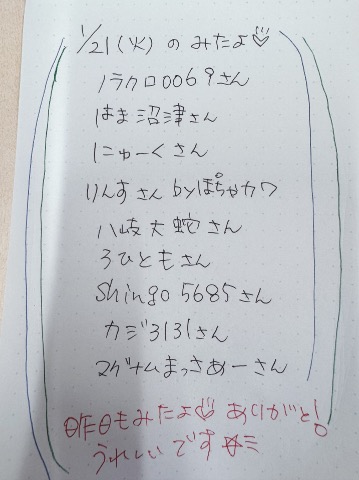 1/21(火)のみたよ♡
ハラクロ0069さん
はま沼津さん
にゅーくさん
りんすさんbyぽちゃカワ
八岐大蛇さん
ろひともさん
Shingo5685さん
カジ3131さん
マグナムまっさあーさん
昨日もみたよ♡ ありがと!
うれしいです☆ミ